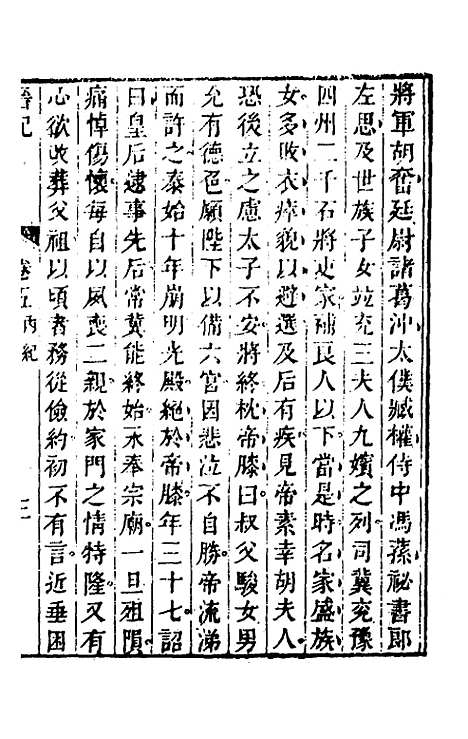 將軍胡奮廷尉諸葛沖太僕臧權侍中馮蓀祕書郎
左思及世族子女並充三夫人九嬪之列司冀兗豫
四州二千石將吏家補良人以下當是時名家盛族
女多敗衣瘁貌以避選及后有疾見帝素幸胡夫人
恐後立之慮太子不安將終枕帝膝曰叔父駿女男
允有德色願陛下以備六宮因悲泣不自勝帝流涕
而許之泰始十年崩明光殿絕於帝膝年三十七詔
曰皇后逮事先后常冀能終始永奉宗廟一旦殂隕
痛悼傷懷每自以夙喪二親於家門之情特隆又有
心欲改葬父祖以頃者務從儉約初不有言近垂困
晉記 卷五 內紀 三